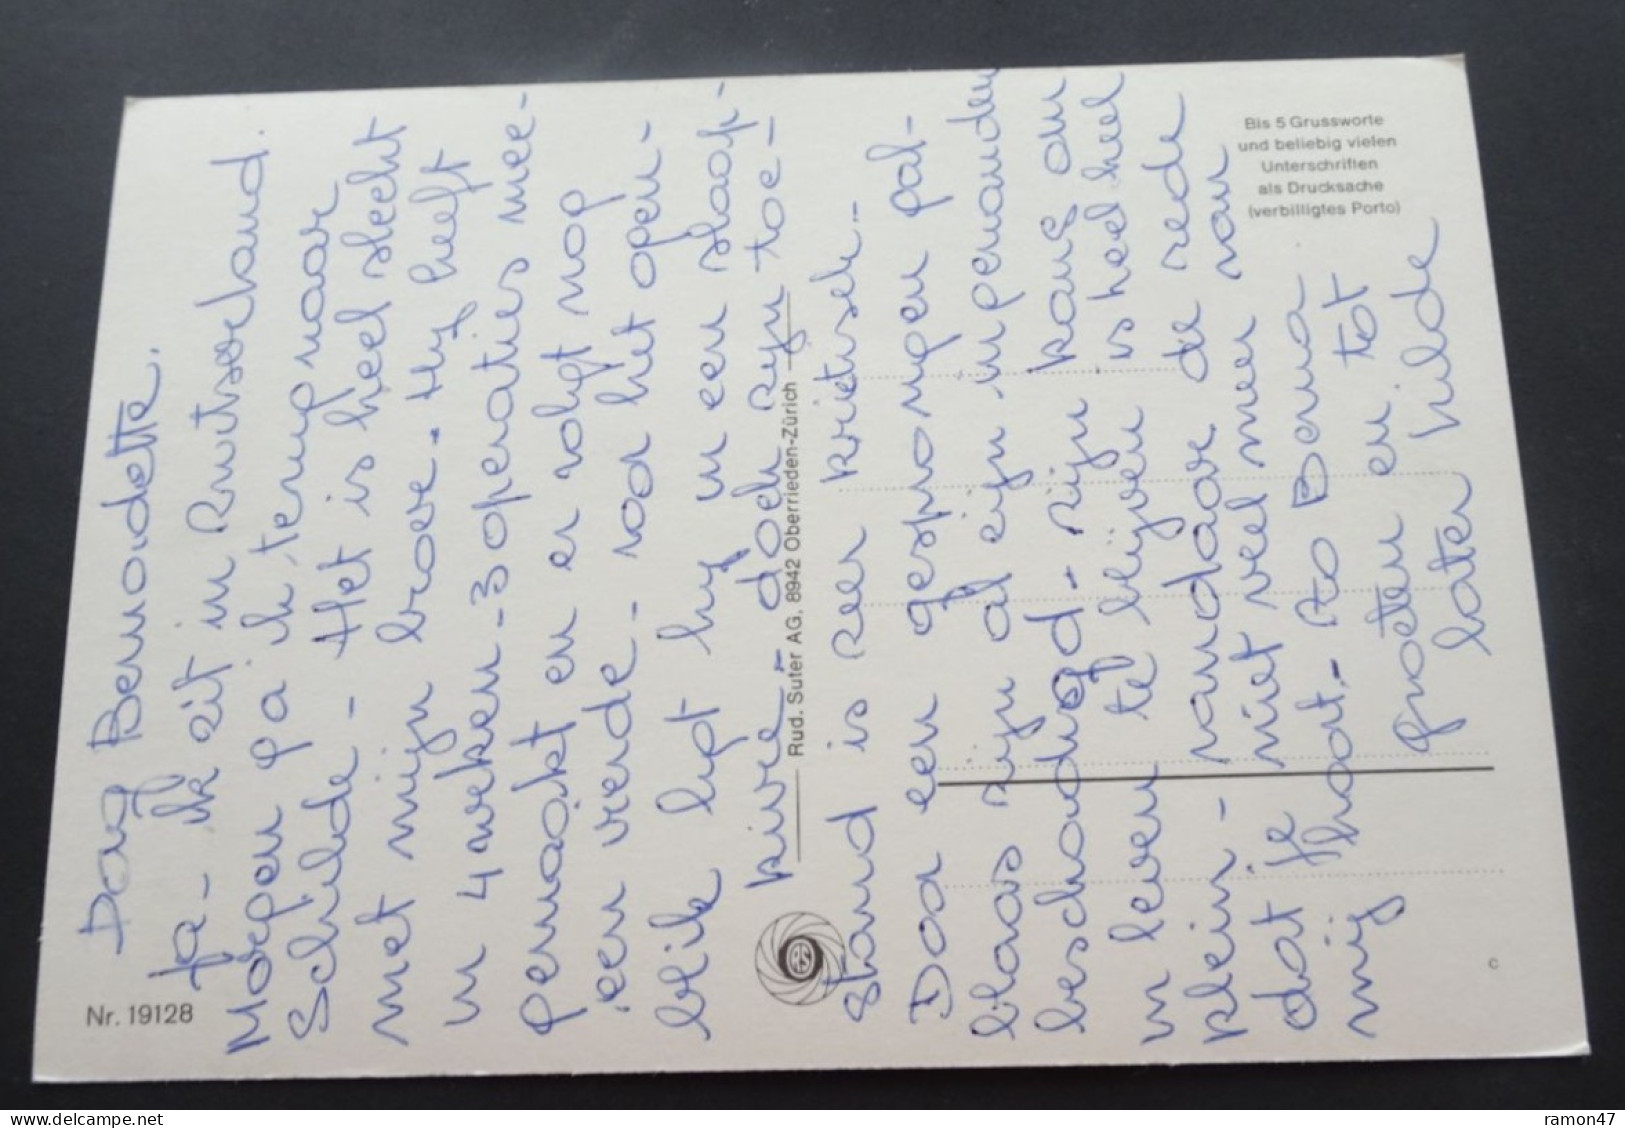 Dag Bernadette.
Ja - ik zit in Zwitserland.
Morgen ga ik terug naar
Schilde - Het is heel slecht
met mijn broer. Hij heeft
in 4 weken - 3 operaties mee-
gemaakt en er volgt nog
een vierde - van het ogen-
blik ligt hij in een slaap-
kuur - doch zijn toe-
stand is zeer kritisch -
Door een gesprongen gal-
blaas zijn al zijn ingewanden
beschadigd - zijn kans om
in leven te blijven is heel heel
klein - vandaar de rede
dat je niet veel meer van
mij hoort. - Zo Berna
groeten en tot
later Hilde
Nr. 19128
Rud. Suter AG. 8942 Oberrieden-Zürich
Bis 5 Grussworte
und beliebig vielen
Unterschriften
als Drucksache
(verbilligtes Porto)
c
www.delcampe.net
ramon47